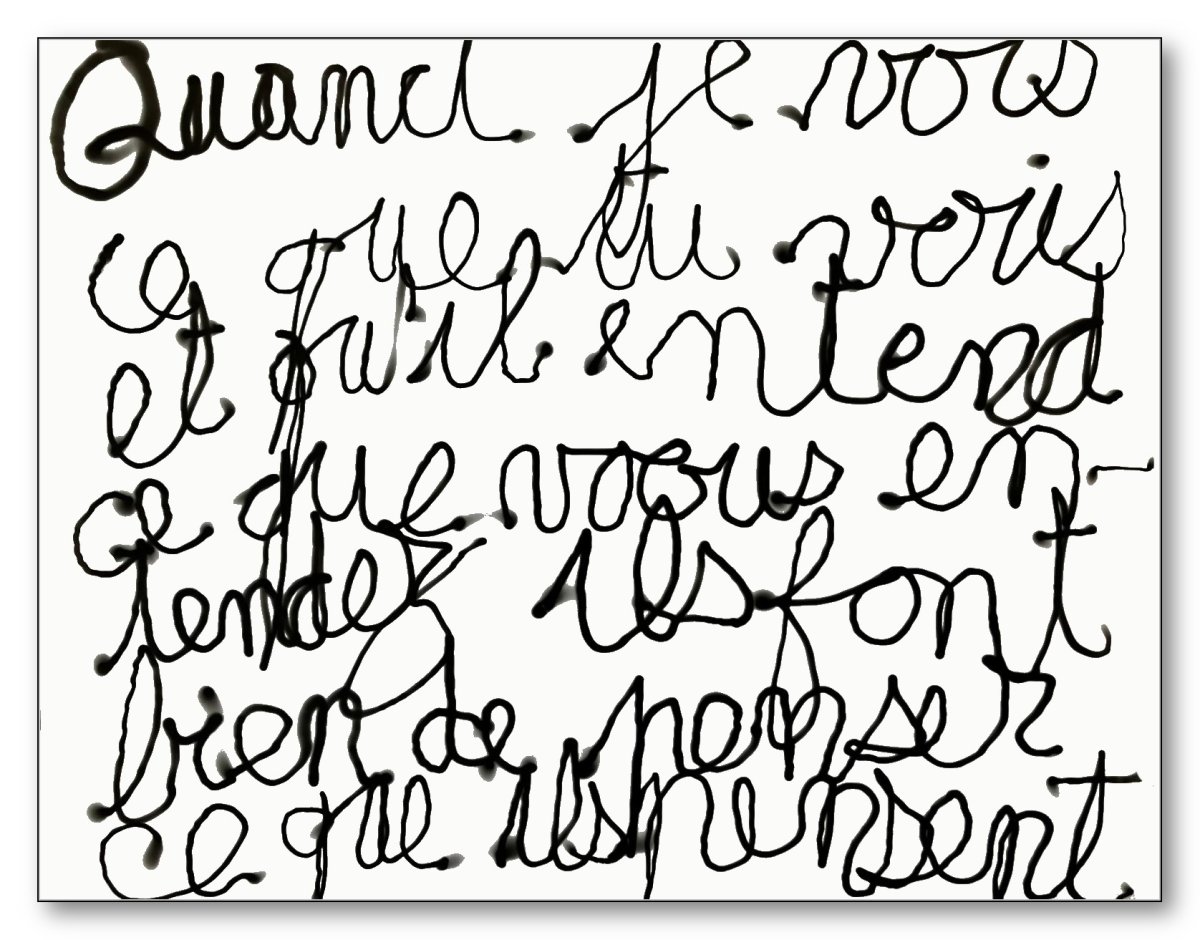 Quand je vois
ce que tu vois
et qu'il entend
ce que vous en-
tendez ils font
bien de penser
ce que ils pensent.